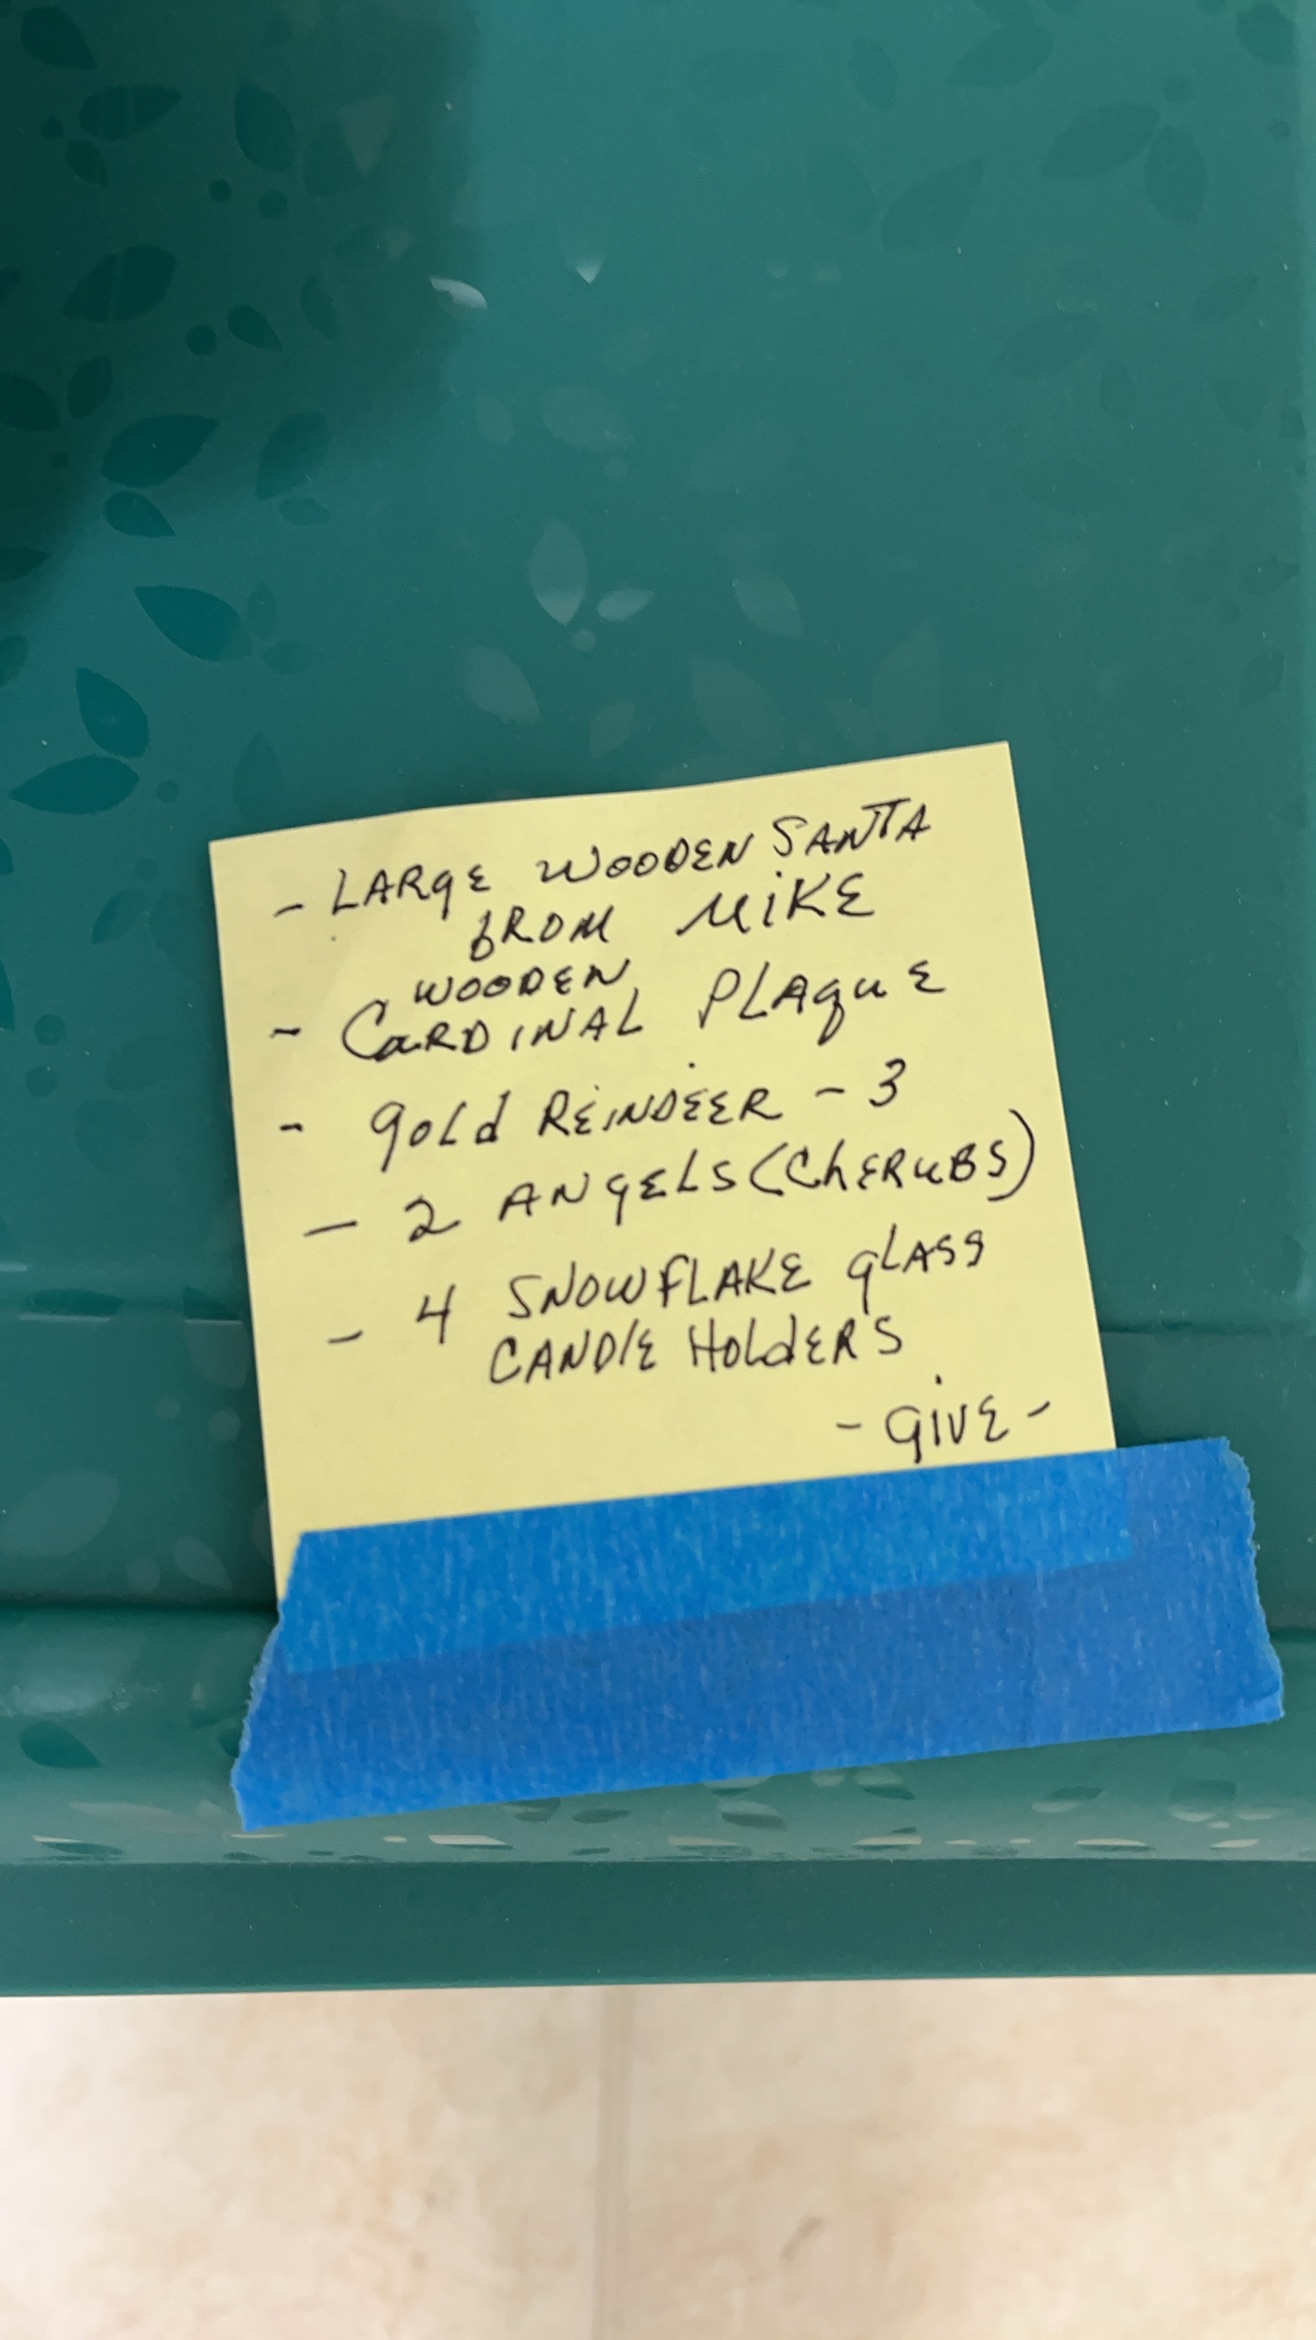 - LARGE WOODEN SANTA
FROM MIKE
WOODEN
- CARDINAL PLAQUE
- GOLD REINDEER - 3
- 2 ANGELS (CHERUBS)
- 4 SNOWFLAKE GLASS
CANDLE HOLDERS
- GIVE -